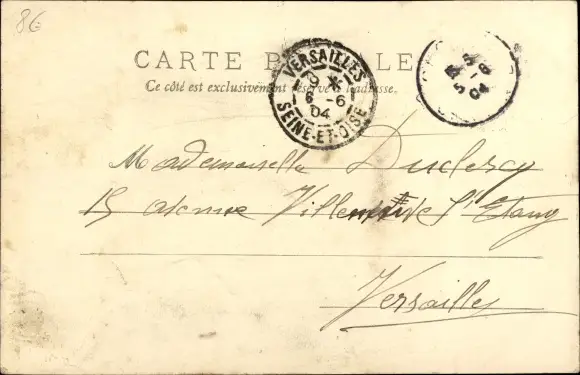 86
CARTE POSTALE
Ce côté est exclusivement réservé à l'adresse.
VERSAILLES
9 *
6 -6
04
SEINE-ET-OISE
5 -6
04
Mademoiselle Duclercq
15 avenue Villeneuve l'Etang
Versailles